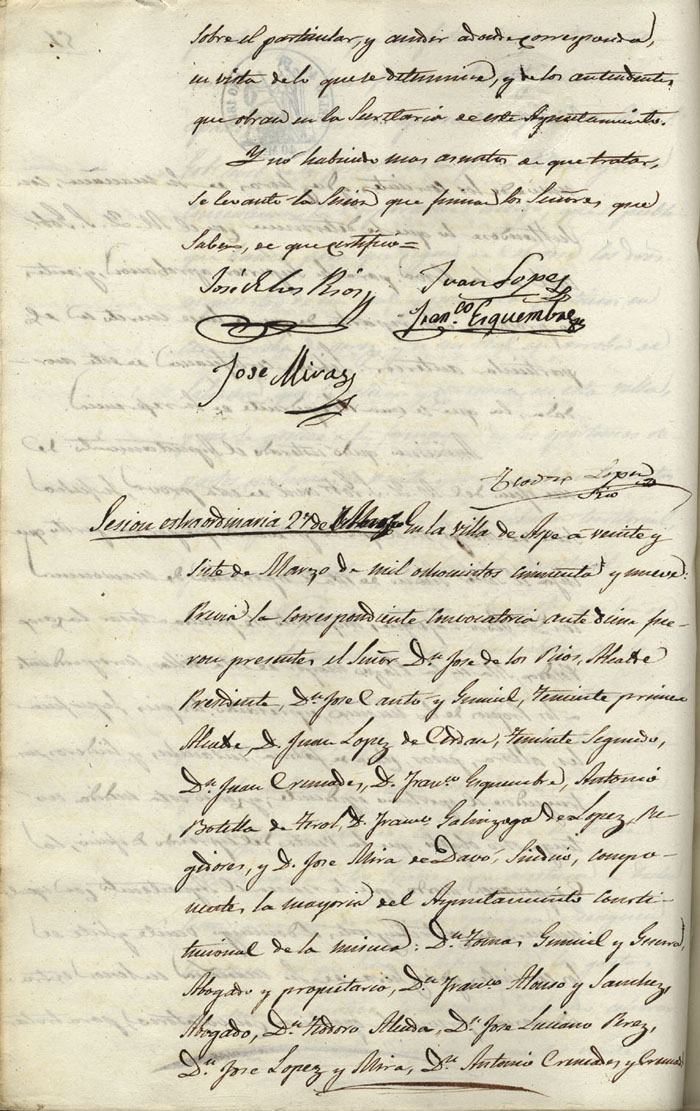 sobre el particular, y acudir adonde corresponda,
en vista de lo que se determine, y de los antecedentes
que obran en la Secretaria de este Ayuntamiento.
Y no habiendo mas asuntos de que tratar,
se levanto la Sesion que firman los Señores que
Saben, de que certifico=
José de los Rios Juan Lopez
Fran.co Esquembre
Jose Miraz
Lopez
Srio
Sesion extraordinaria 27 de Marzo En la villa de Aspe a veinte y
siete de Marzo de mil ochocientos cincuenta y nueve:
Previa la correspondiente convocatoria ante diem fue-
ron presentes el Señor Dn. Jose de los Rios, Alcalde
Presidente, Dn. Jose Canto y Gumiel, teniente primero
Alcalde, D. Juan Lopez de Cerdan, teniente Segundo,
Dn. Juan Cremades, D. Franco. Esquembre, Antonio
Botella de Terol, D. Franco. Galinzoga de Lopez, Re-
gidores, y D. Jose Mira de Davó, Sindico, compo-
nentes la mayoria del Ayuntamiento consti-
tucional de la misma: Dn. Tomas Gumiel y Guerra,
Abogado y propietario, Dn. Franco. Alonso y Sanchez,
Abogado, Dn. Isidoro Alcada, Dn. Jose Luciano Perez,
Dn. Jose Lopez y Mira, Dn. Antonio Cremades y